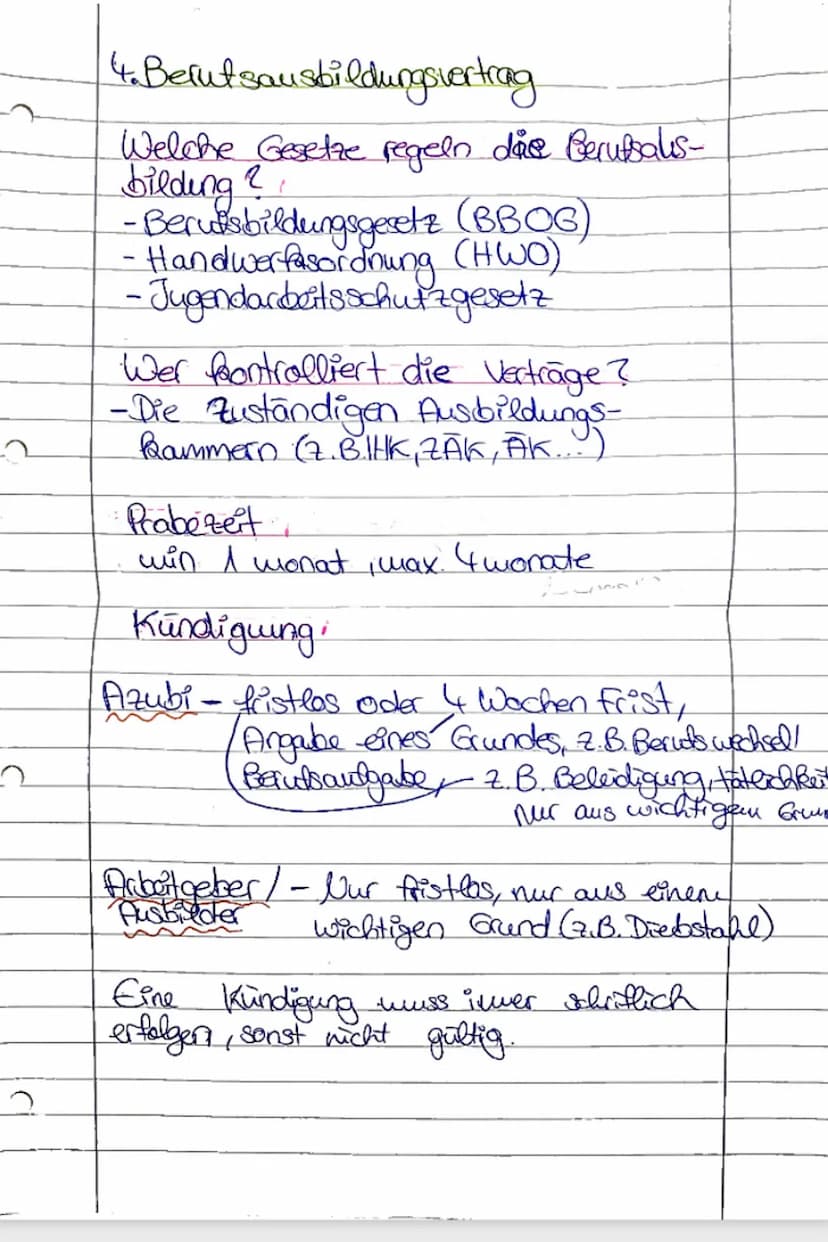 4. Berufsausbildungsvertrag
Welche Gesetze regeln die Berufsaus-
bildung?
- Berufsbildungsgesetz (BBOG)
- Handwerksordnung (HWO)
- Jugendarbeitsschutzgesetz
Wer kontrolliert die Verträge?
- Die zuständigen Ausbildungs-
kammern (z.B. IHK, ZÄK, ÄK...)
Probezeit
min 1 monat, max. 4 monate
Kündigung
Azubi - fristlos oder 4 Wochen Frist,
Angabe eines Grundes, z.B. Berufswechsel/
Berufsaufgabe, z.B. Beleidigung, tätlichkeit
Nur aus wichtigem
Arbeitgeber/ - Nur fristlos, nur aus einem
Ausbilder wichtigen Grund (z.B. Diebstahl)
Eine Kündigung muss immer schriftlich
erfolgen, sonst nicht gültig.